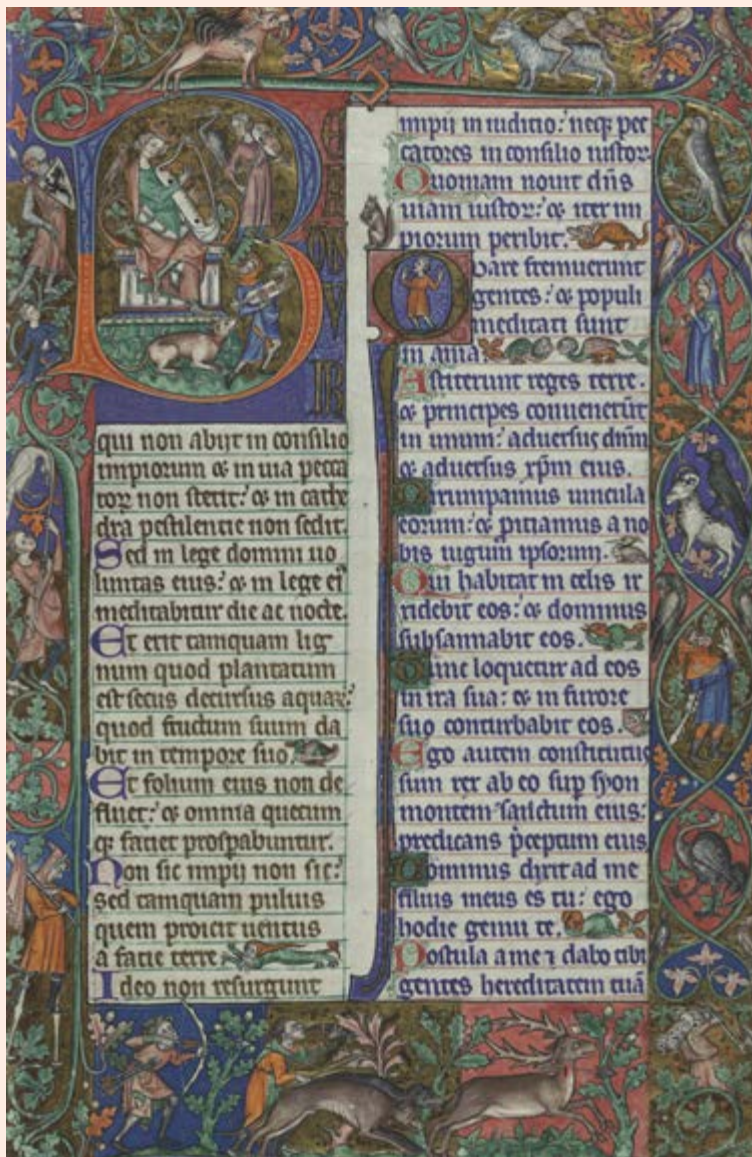 B
V
IR
qui non abijt in consilio
impiorum & in uia pecca
tor non stetit: & in cathe
dra pestilentie non sedit.
Sed in lege domini uo
luntas eius: & in lege ei
meditabitur die ac nocte.
Et erit tamquam lig
num quod plantatum
est secus decursus aquar:
quod fructum suum da
bit in tempore suo.
Et folium eius non de
fluet: & omnia quecum
q; faciet prospabuntur.
Non sic impij non sic:
sed tamquam puluis
quem proicit uentus
a facie terre
Ideo non resurgunt
impij in iuditio: neq; pec
catores in consilio iustor
Quoniam nouit dñs
uiam iustor: & iter im
piorum peribit.
Quare fremuerunt
gentes: & populi
meditati sunt
in ania
Astiterunt reges terre.
& principes conuenerūt
in unum: aduersus dnm
& aduersus xpm eius.
Dirumpamus uincula
eorum: & piciamus a no
bis iugum ipsorum.
Qui habitat in celis ir
ridebit eos: & dominus
subsannabit eos.
Tunc loquetur ad eos
in ira sua: & in furore
suo conturbabit eos.
Ego autem constitutus
sum rex ab eo sup syon
montem sanctum eius:
predicans pceptum eius
Dominus dixit ad me
filius meus es tu: ego
hodie genui te.
Postula a me ⁊ dabo tibi
gentes hereditatem tuā